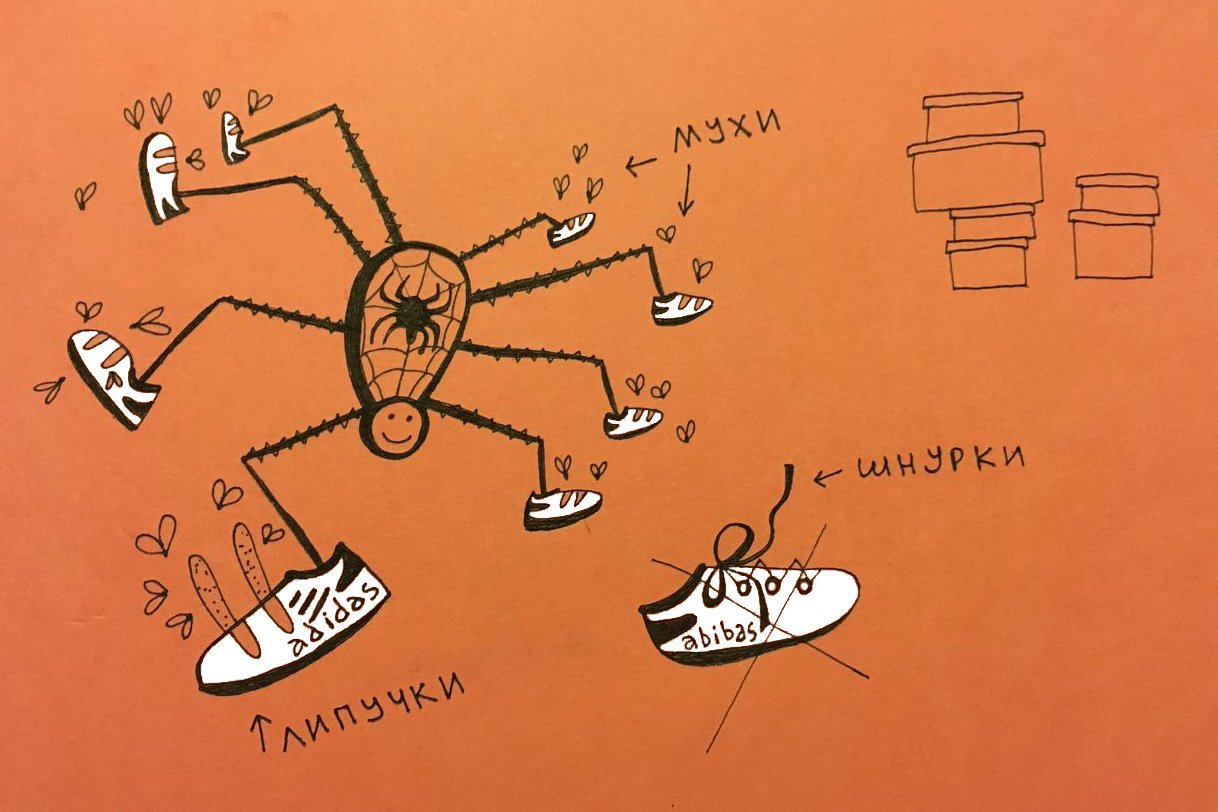 МУХИ
ШНУРКИ
adidas
abibas
ЛИПУЧКИ